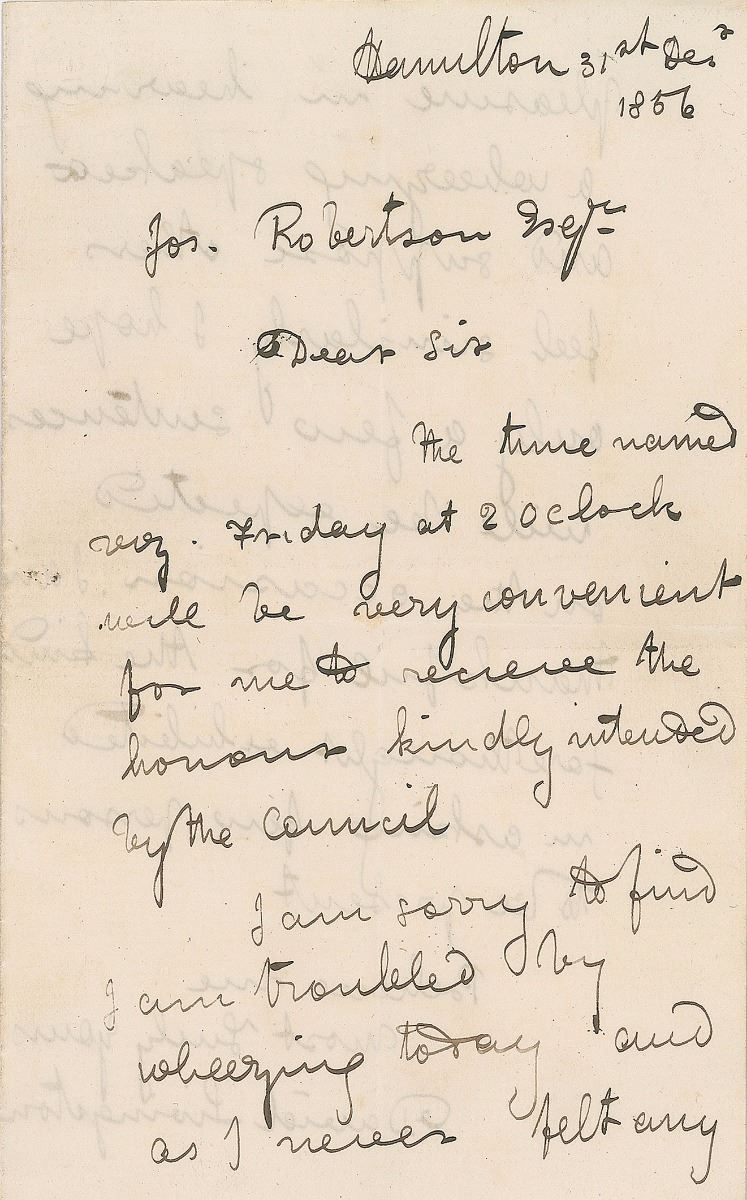 Hamilton 31st Decr
1856
Jos. Robertson Esqr
Dear Sir
the time named
viz. Friday at 2 OClock
will be very convenient
for me to recieve the
honour kindly intended
by the Council
I am sorry to find
I am troubled by
wheezing today and
as I never felt any